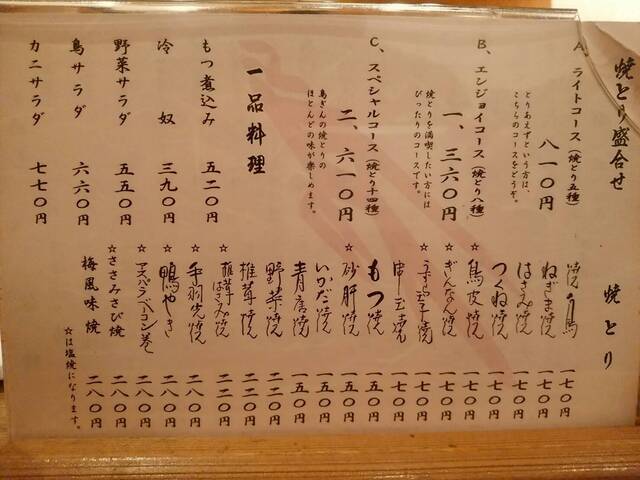 焼とり盛合せ
A、ライトコース(焼とり五種)
八一〇円
とりあえずという方は、
こちらのコースをどうぞ。
B、エンジョイコース(焼とり八種)
一、三六〇円
焼とりを満喫したい方には
ぴったりのコースです。
C、スペシャルコース(焼とり十四種)
二、六一〇円
鳥ぎんの焼とりの
ほとんどの味が楽しめます。
一品料理
もつ煮込み 五二〇円
冷奴 三九〇円
野菜サラダ 五五〇円
鳥サラダ 六六〇円
カニサラダ 七七〇円
焼とり
焼鳥 一七〇円
ねぎま焼 一七〇円
はさみ焼 一七〇円
つくね焼 一七〇円
☆鳥皮焼 一七〇円
☆ぎんなん焼 一七〇円
☆うずら玉子焼 一七〇円
中玉焼 一七〇円
もつ焼 一五〇円
☆砂肝焼 一五〇円
いかだ焼 一五〇円
青唐焼 一五〇円
野菜焼 二二〇円
椎茸焼 二二〇円
☆椎茸はさみ焼 二二〇円
☆手羽先焼 二八〇円
☆鴨やき 二八〇円
☆アスパラベーコン巻 二八〇円
☆ささみさび焼 二八〇円
梅風味焼 二八〇円
☆は塩焼になります。